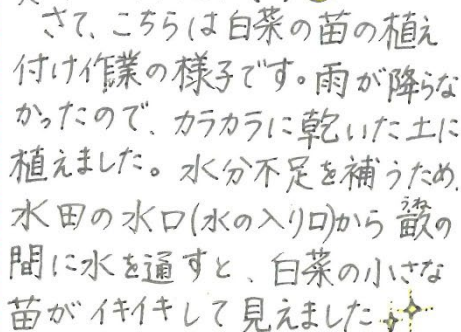 さて、こちらは白菜の苗の植え
付け作業の様子です。雨が降らな
かったので、カラカラに乾いた土に
植えました。水分不足を補うため、
水田の水口(水の入り口)から畝(うね)の
間に水を通すと、白菜の小さな
苗がイキイキして見えました